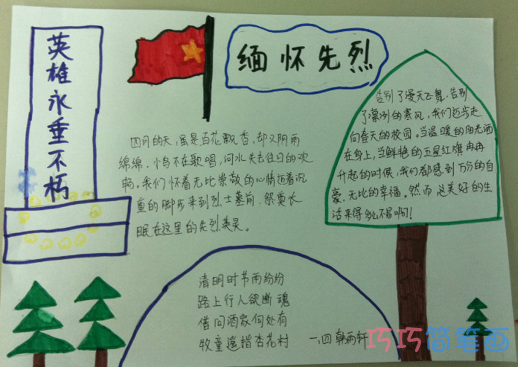 缅怀先烈
英雄永垂不朽
四月的天,虽是百花飘香,却又阴雨
绵绵,小鸟不在歌唱,河水失去往日的欢
畅,我们怀着无比崇敬的心情迈着沉
重的脚步来到烈士墓前,祭奠长
眠在这里的先烈英灵。
告别了漫天飞舞,告别
了凛冽的寒风,我们迈步走
向春天的校园。当温暖的阳光洒
在身上,当鲜艳的五星红旗冉冉
升起的时候,我们都感到万分的自
豪,无比的幸福。然而这美好的生
活来得多么不容易啊!
清明时节雨纷纷
路上行人欲断魂
借问酒家何处有
牧童遥指杏花村
一、四
巧巧简笔画